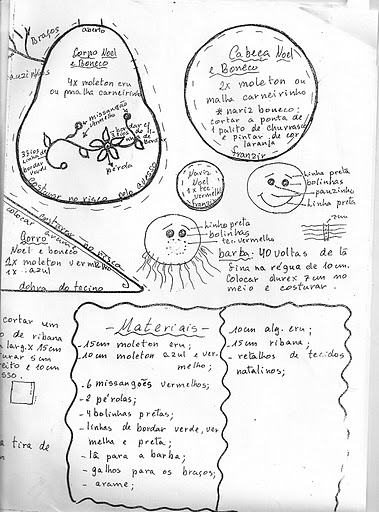 Braços
pauzinhos
aberto
Corpo Noel
e Boneco
4x moleton cru
ou malha carneirinho
missangão
vermelho
3 fios de
linha de
bordar
verde
bordar c/
fio
de
linha de
bordar
pérola
costurar no risco pelo avesso
Cabeça Noel
e Boneco
2x moleton ou
malha carneirinho
* nariz boneco:
cortar a ponta de
1 palito de churrasco
e pintar de cor
laranja
franzir
Nariz
Noel
1x tec.
vermelho
franzir
linha preta
bolinhas
pauzinho
linha preta
7cm
linha preta
bolinhas
tec. vermelho
barba: 40 voltas de lã
fina na régua de 10cm.
Colocar durex 7cm no
meio e costurar.
costurar no risco
colocar arame
Gorro
Noel e boneco
2x moleton vermelho
1x " azul
dobra do tecido
cortar um
de ribana
larg. x 15cm
5cm
e 10cm
tira de
- Materiais -
- 15cm moleton cru;
- 10cm moleton azul e ver-
melho;
- 6 missangões vermelhos;
- 2 pérolas;
- 4 bolinhas pretas;
- linhas de bordar verde, ver
melha e preta;
- lã para a barba;
- galhos para os braços;
- arame;
- 10cm alg. cru;
- 15cm ribana;
- retalhos de tecidos
natalinos;